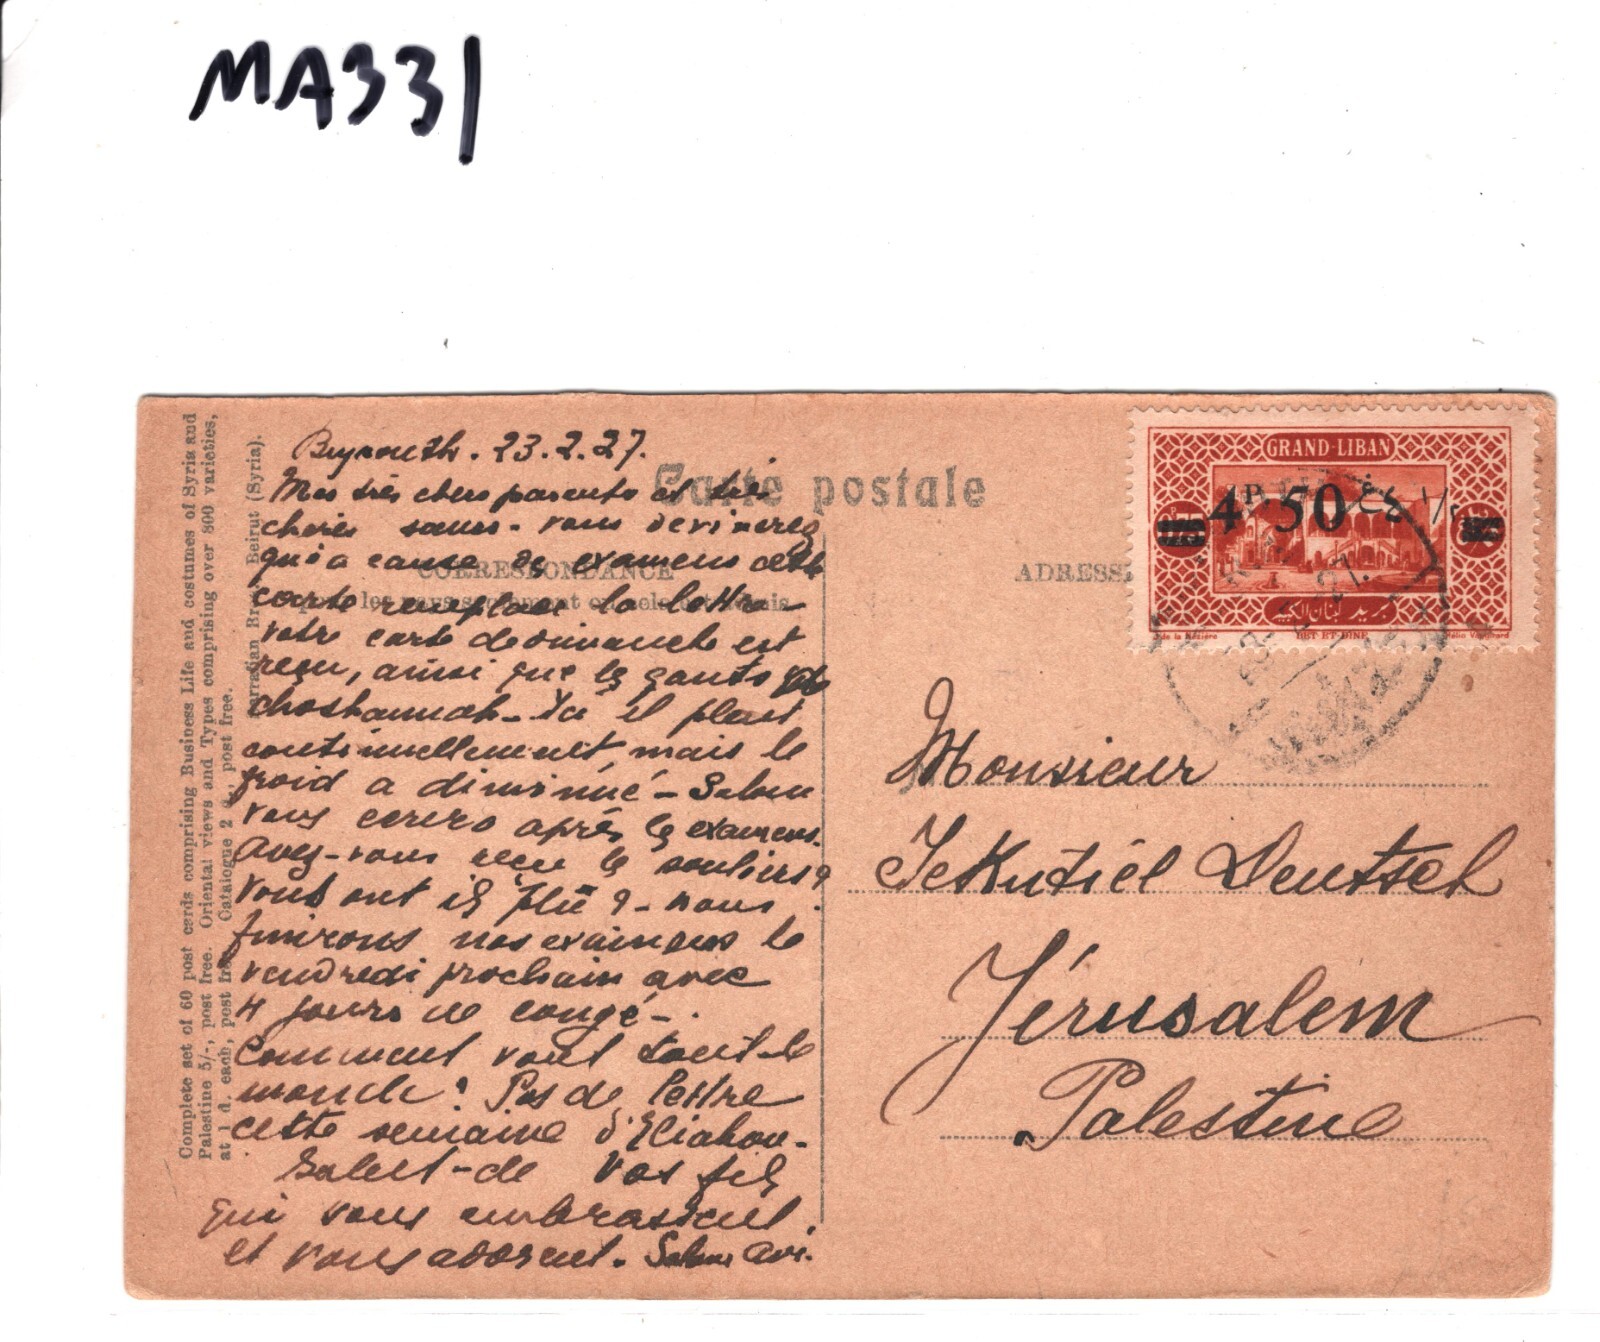 MA331
Carte postale
CORRESPONDANCE
ADRESSE
Beyrouth. 23.2.27.
Mes très chers parents et très
chères sœurs - vous devinerez
qu'à cause des examens cette
carte remplace la lettre
votre carte de dimanche est
reçu, ainsi que les gants de
Choshannah - Ici il pleut
continuellement, mais le
froid a diminué - Salom
vous écrira après les examens.
Avez-vous reçu les souliers?
vous ont ils plu? - nous
finirons nos examens le
vendredi prochain avec
4 jours de congé -
Comment vont tout le
monde? Pas de lettre
cette semaine d'Eliahou -
Salut - de vos fils
qui vous embrassent
et vous adorent. Salom Avi.
Complete set of 60 post cards comprising Business Life and costumes of Syria and
Palestine 5/-, post free. Oriental views and Types comprising over 800 varieties,
at 1 d. each, post free. Catalogue 2 d., post free.
Sarrafian Bros. Beirut (Syria).
GRAND-LIBAN
4P 50
بريد لبنان الكبير
BEIT-ET-DINE
J. de la Nézière
Hélio Vaugirard
Monsieur
Jekutiél Deutsch
Jérusalem
Palestine